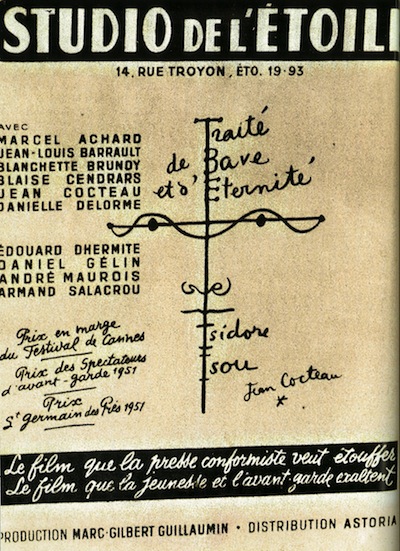 STUDIO DE L'ÉTOILE
14, RUE TROYON, ÉTO. 19-93
AVEC
MARCEL ACHARD
JEAN-LOUIS BARRAULT
BLANCHETTE BRUNOY
BLAISE CENDRARS
JEAN COCTEAU
DANIELLE DELORME
ÉDOUARD DHERMITE
DANIEL GÉLIN
ANDRÉ MAUROIS
ARMAND SALACROU
Traité
de Bave
et d'Éternité
de
Isidore
Isou
Jean Cocteau
*
Prix en marge
du Festival de Cannes
Prix des Spectateurs
d'avant-garde 1951
Prix
St germain des Prés 1951
Le film que la presse conformiste veut étouffer
Le film que la jeunesse et l'avant-garde exaltent
PRODUCTION MARC-GILBERT GUILLAUMIN • DISTRIBUTION ASTORIA